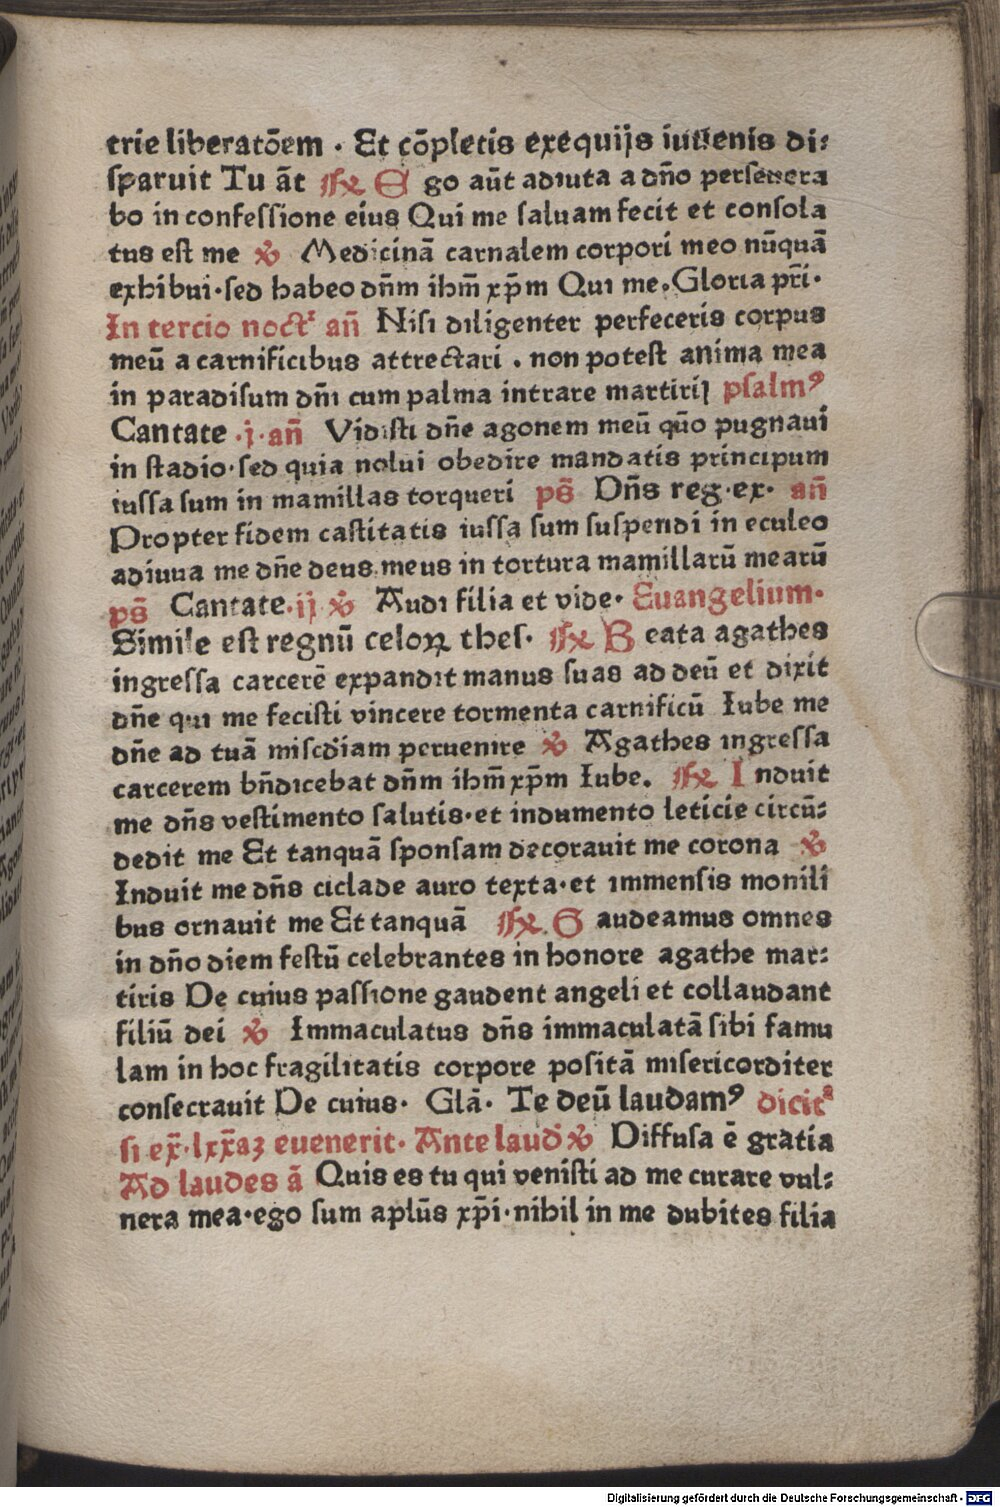 trie liberatōem · Et cōpletis exequijs iuuenis di⸗
ſparuit Tu āt ℟ E go aūt adiuta a dn̄o perſeuera
bo in confeſſione eius Qui me ſaluam fecit et conſola
tus eſt me ℣ Medicinā carnalem corpori meo nūquā
exhibui·ſed habeo dn̄m ihm̄ xp̄m Qui me.Gloria pr̄i·
In tercio noctᷣ an̄ Niſi diligenter perfeceris corpus
meū a carnificibus attrectari . non poteſt anima mea
in paradiſum dn̄i cum palma intrare martirij pſalmꝰ
Cantate ·j·an̄ Vidiſti dn̄e agonem meū quo͞ pugnaui
in ſtadio·ſed quia nolui obedire mandatis principum
iuſſa ſum in mamillas torqueri pš Dn̄s reg·ex· an̄
Propter fidem caſtitatis iuſſa ſum ſuſpendi in eculeo
adiuua me dn̄e deus meus in tortura mamillarū mearū
pš Cantate·ij ℣ Audi filia et vide· Euangelium·
Simile eſt regnū celoꝝ theſ· ℟ B eata agathes
ingreſſa carcerē expandit manus ſuas ad deū et dixit
dn̄e qui me feciſti vincere tormenta carnificū Iube me
dn̄e ad tuā miſcdīam peruenire ℣ Agathes ingreſſa
carcerem bn̄dicebat dn̄m ihm̄ xp̄m Iube. ℟ I nduit
me dn̄s veſtimento ſalutis·et indumento leticie circū⸗
dedit me Et tanquā ſponſam decorauit me corona ℣
Induit me dn̄s ciclade auro texta·et immenſis monili
bus ornauit me Et tanquā ℟ G audeamus omnes
in dn̄o diem feſtū celebrantes in honore agathe mar⸗
tiris De cuius paſſione gaudent angeli et collaudant
filiū dei ℣ Immaculatus dn̄s immaculatā ſibi famu
lam in hoc fragilitatis corpore poſitā miſericorditer
conſecrauit De cuius· Glā· Te deū laudamꝰ dicitᷣ
ſi ex̄·lxx̄aʒ euenerit· Ante laud̄ ℣ Diffuſa ē gratia
Ad laudes ā Quis es tu qui veniſti ad me curare vul⸗
nera mea·ego ſum aplūs xp̄i·nihil in me dubites filia
Digitalisierung gefördert durch die Deutsche Forschungsgemeinschaft - DFG